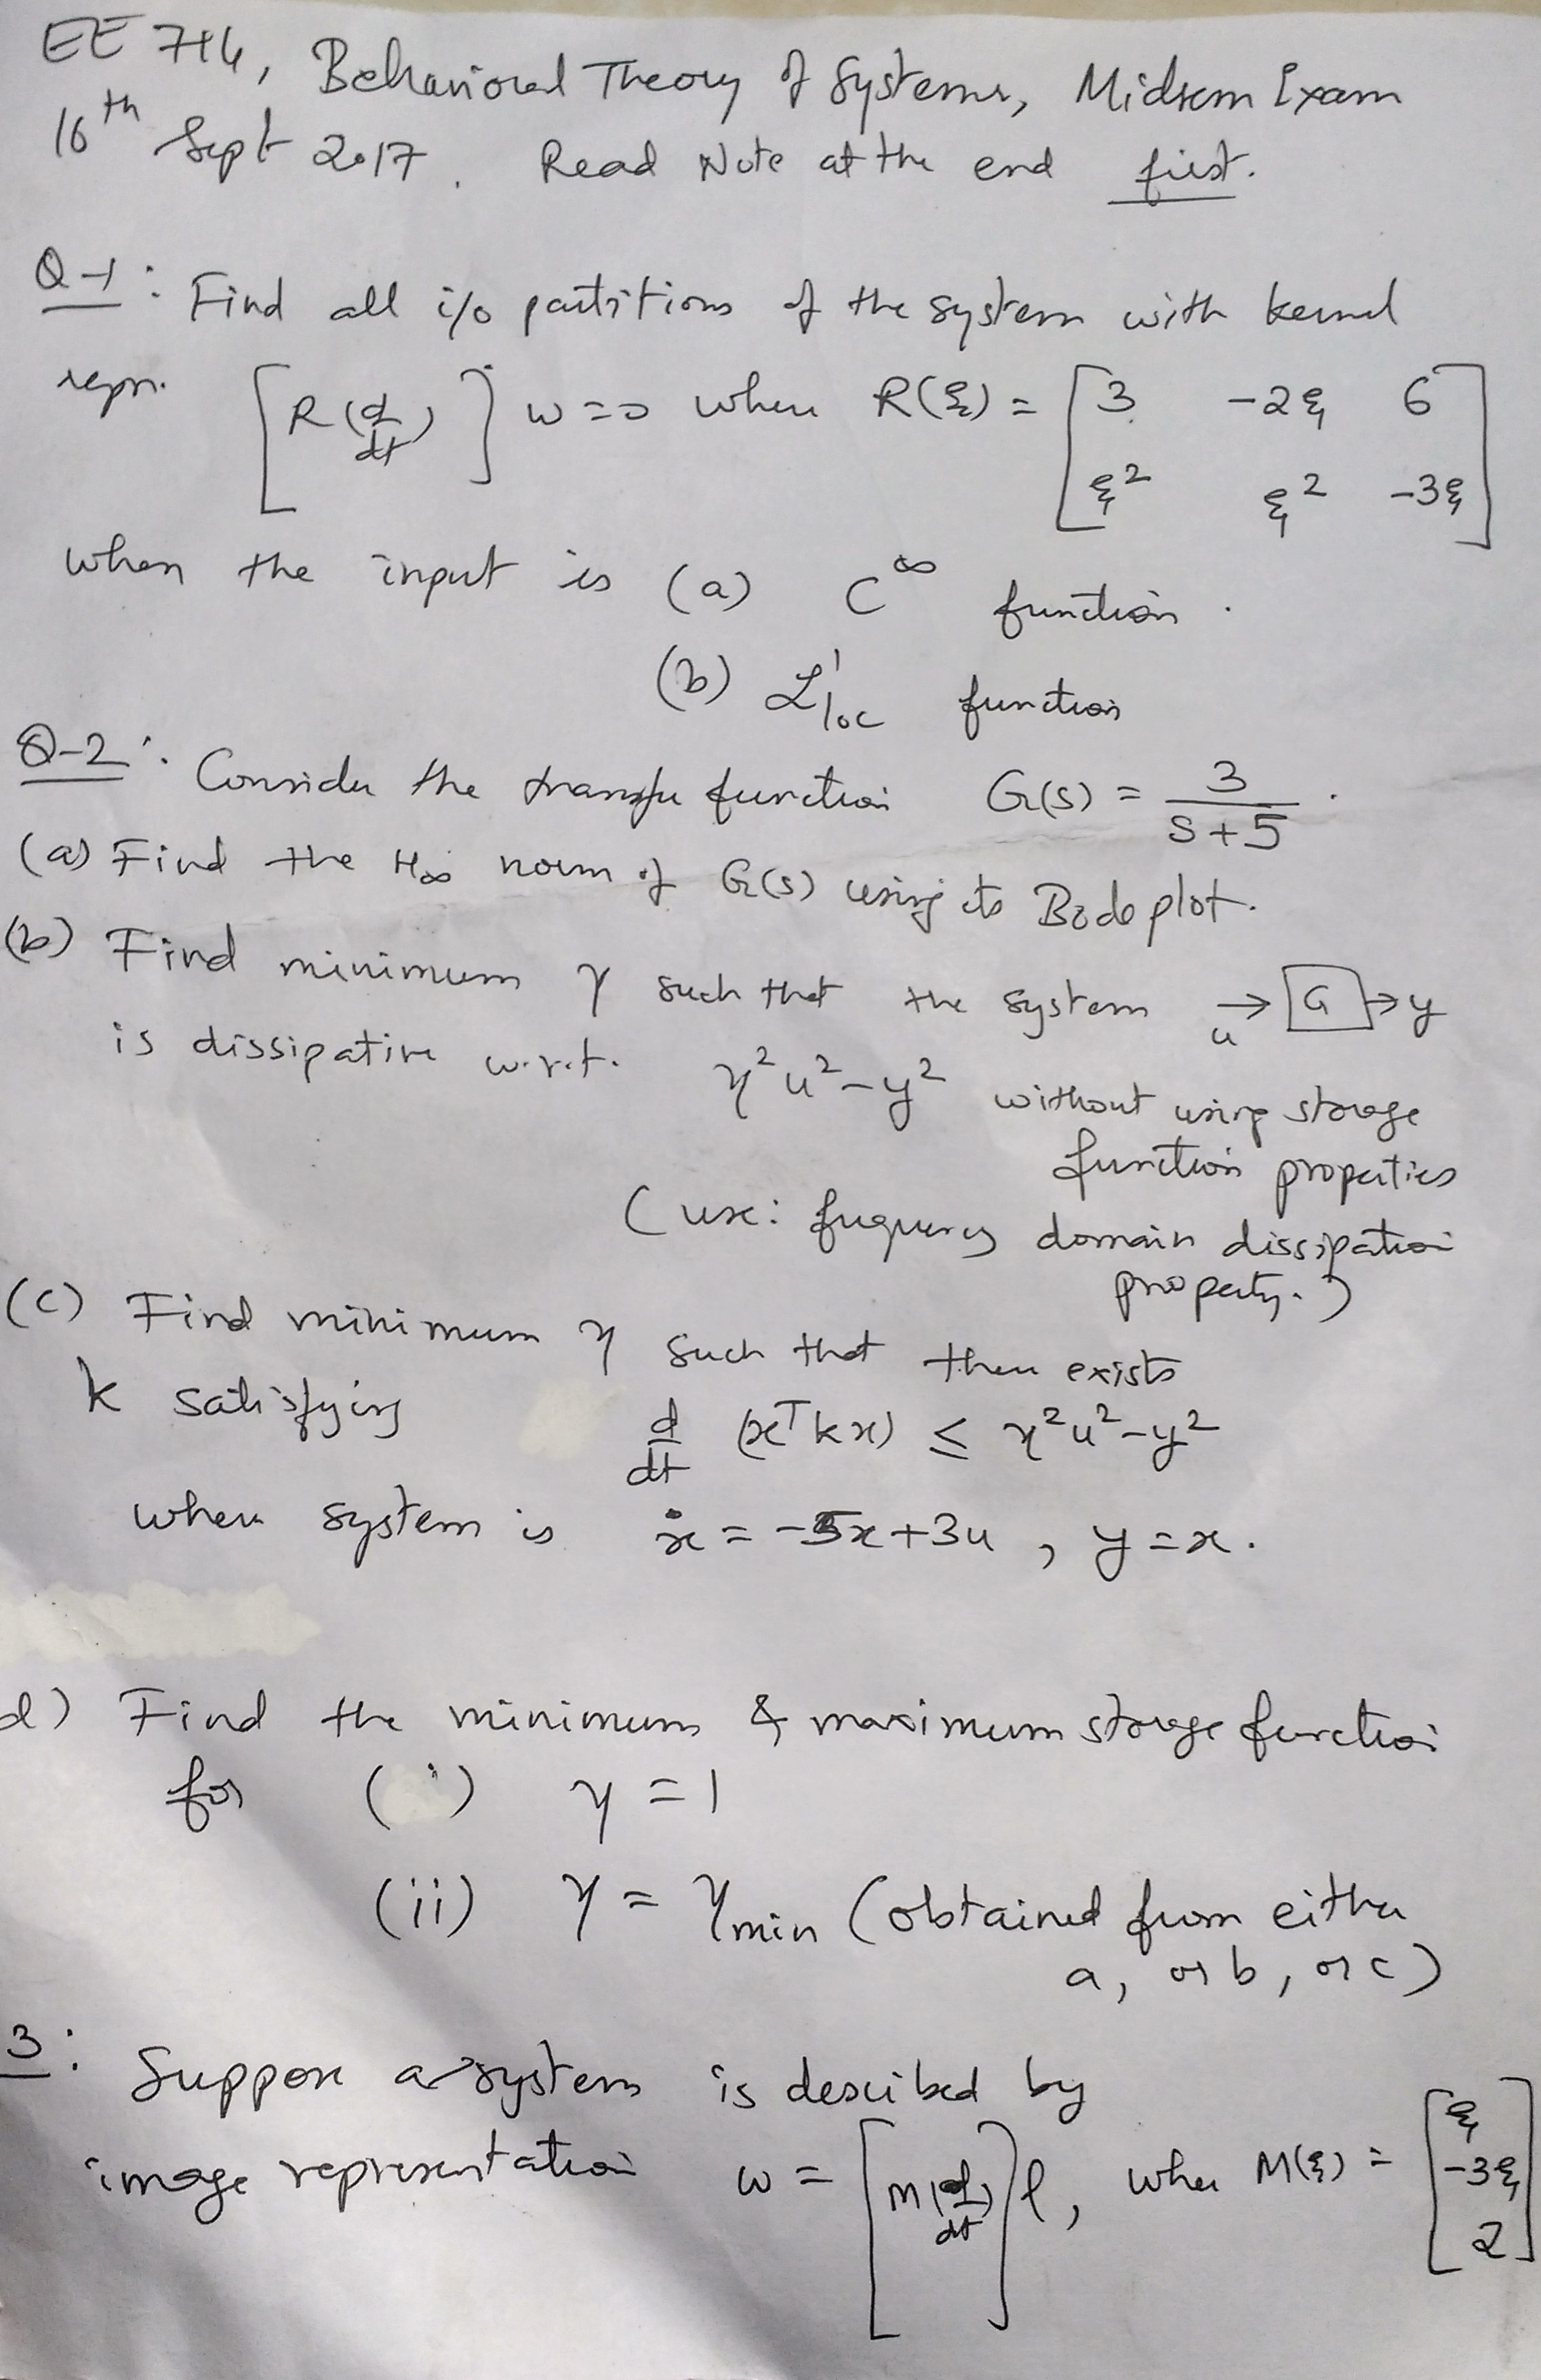 EE 714, Behavioral Theory of Systems, Midsem Exam
16th Sept 2017. Read Note at the end first.
Q-1: Find all i/o partitions of the system with kernel
repn. [R(d/dt)] w=0 where R(ξ) = [3 -2ξ 6
ξ² ξ² -3ξ]
when the input is (a) C^∞ function.
(b) L¹loc function
Q-2: Consider the transfer function G(s) = 3/(s+5).
(a) Find the H∞ norm of G(s) using its Bode plot.
(b) Find minimum γ such that the system →u [G] → y
is dissipative w.r.t. γ²u²-y² without using storage
function properties
(use: frequency domain dissipation
property.)
(c) Find minimum γ such that there exists
k satisfying d/dt (xᵀkx) ≤ γ²u²-y²
when system is ẋ = -5x+3u, y=x.
d) Find the minimum & maximum storage function
for (i) γ=1
(ii) γ = γmin (obtained from either
a, or b, or c)
3: Suppose a system is described by
image representation w = [M(d/dt)] l, where M(ξ) = [ξ
-3ξ
2]